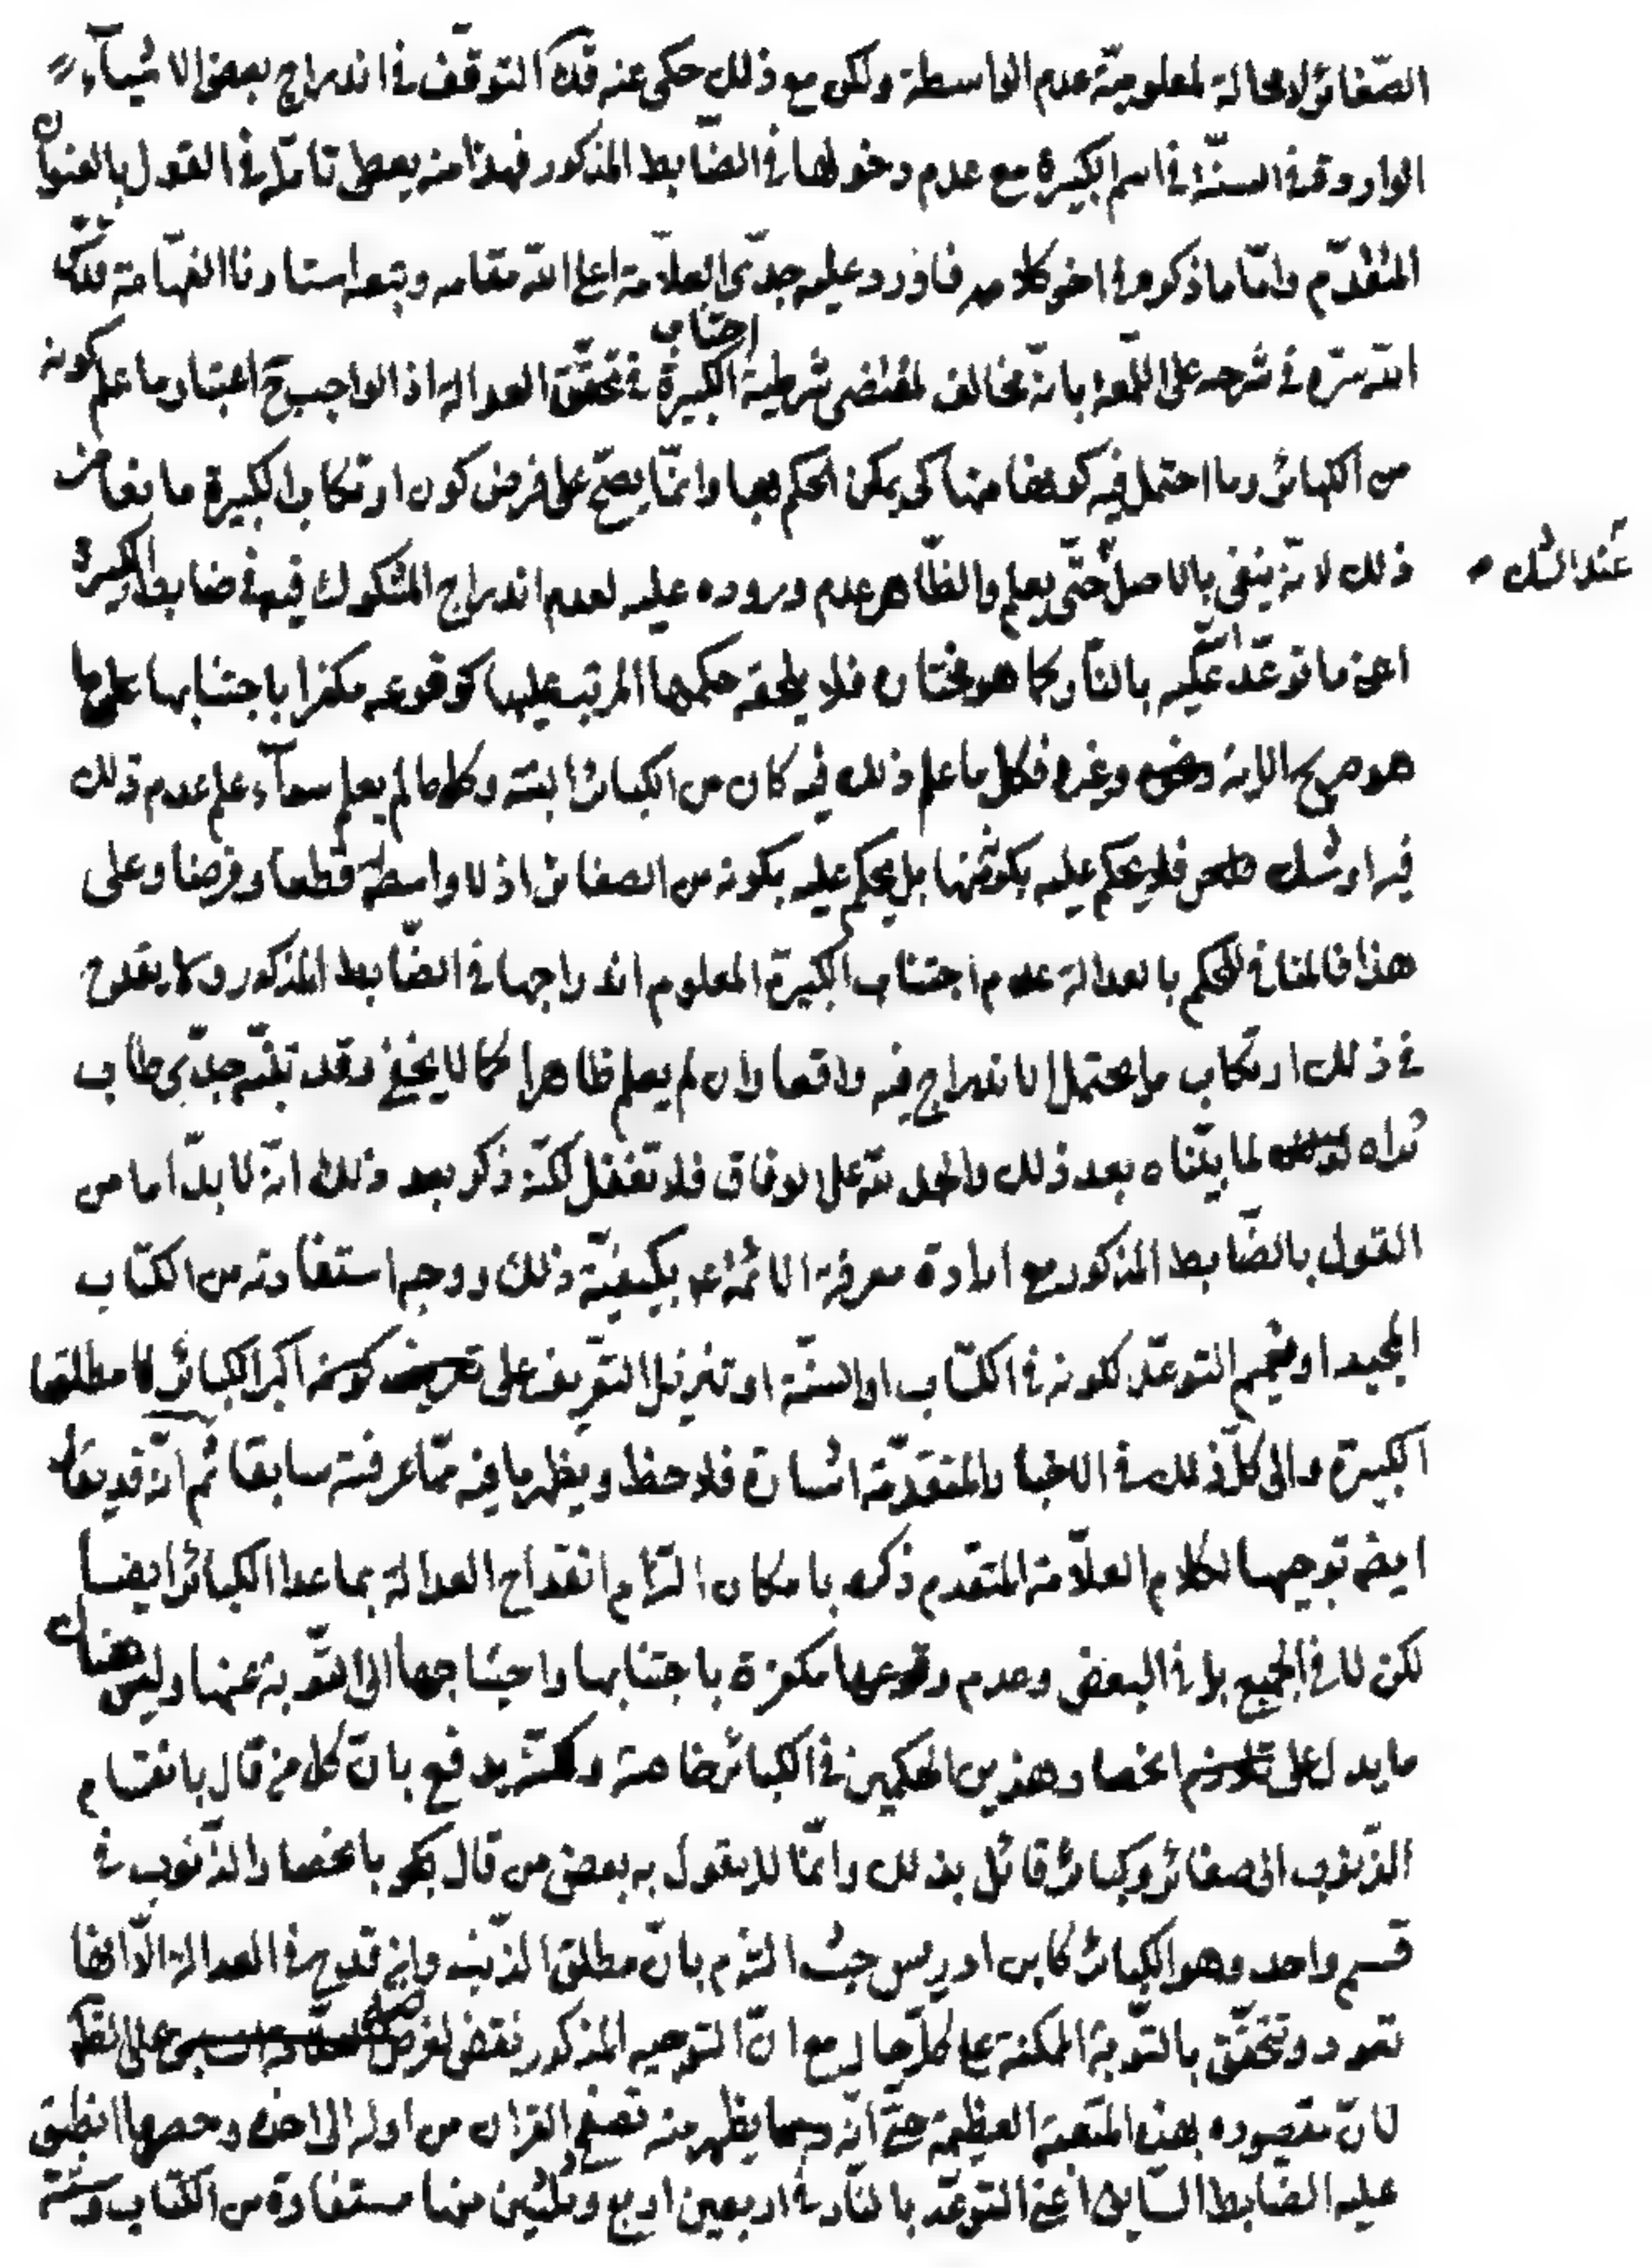 الصّغائر لا محالة لمعلوميّة عدم الواسطة ولكن مع ذلك حكى عنه قدّه التوقّف في اندراج بعض الاشيآء
الواردة في السنّة في اسم الكبيرة مع عدم دخولها في الضّابط المذكور فهذا منه يعطى تامّلا في القول بالعنوان
المتقدّم وامّا ما ذكره في اخر كلامه فاورد عليه جدّى العلّامة اعلى الله مقامه وتبعه استادنا الفهّامة قدّس
الله سرّه في شرحه على اللّمعة بانّه مخالف لمقتضى شرطية اجتناب الكبيرة في تحقّق العدالة اذ الواجب ح اعتبار ما علم كونه
من الكبائر وما احتمل فيه كونها منها كى يمكن الحكم بها وانّما يصحّ على فرض كون ارتكاب الكبيرة مانعا من
ذلك لانّه ينفى بالاصل حتّى يعلم والظّاهر عدم وروده عليه لعدم اندراج المشكوك فيه في ضابط الكبيرة
عند الشك
اعنى ما توعّد الله عليه بالنّار كما هو مختاره فلا يلحقه حكمها المرتب عليها كوقوعه مكفرا باجتنابها على ما
هو صريح الاية وغيره فكل ما علم ذلك فيه كان من الكبائر البتة وكلما لم يعلم سوآء علم عدم ذلك
فيه او شك فلا يحكم عليه بكونه منها بل يحكم عليه بكونه من الصغائر اذ لا واسطة قطعا وفرضا وعلى
هذا فالمنافى للحكم بالعدالة عدم اجتناب الكبيرة المعلوم اندراجها في الضّابط المذكور ولا يقدح
في ذلك ارتكاب ما يحتمل الاندراج فيه واقعا وان لم يعلم ظاهرا كما لا يخفى وقد تنبّه جدّى طاب
ثراه لما بيّنّاه بعد ذلك والحمد لله على الوفاق فلا تغفل لكنّه ذكر بعد ذلك انّه لا بدّ اما من
القول بالضّابط المذكور مع ارادة معرفة الائمة ع بكيفيّة ذلك ووجه استفادته من الكتاب
المجيد او تعميم التوعّد لكونه في الكتاب او السنّة او تنزيل التّعريف على اكبر الكبائر لا مطلقها
الكبيرة والى كلّ ذلك في الاخبار المتقدّمة اشارة فلاحظ ويظهر ما فيه ممّا عرفته سابقا ثم انّه قد يقال
ايض توجيها لكلام العلّامة المتقدم ذكره بامكان التزام انقداح العدالة بما عدا الكبائر ايضا
لكن لا في الجميع بل في البعض وعدم وقوعها مكفرة باجتنابها واحتياجها الى التّوبة عنها وليس هناك
ما يدل على انحصار هذين الحكمين في الكبائر خاصة ولكنّه يدفع بانّ كل من قال بانقسام
الذّنوب الى صغائر وكبائر قائل بذلك وانّما لا يقول به بعض من قال بانحصار الذّنوب في
قسم واحد وهو الكبائر كابن ادريس حيث التزم بانّ مطلق الذّنب وان قدح في العدالة الّا انها
تعود وتتحقّق بالتّوبة الممكنة على كلّ حال مع انّ التوجيه المذكور نقض لغرضه على الظّ
لانّ مقصوده بهذه المتعبة العظيمة حتّى انّه يظهر منه تصفح القران من اوله الى اخره وحصر ما انطبق
عليه الضّابط السّابق اعنى التوعّد بالنّار في اربعين اربع وثلثين منها مستفادة من الكتاب وستّة